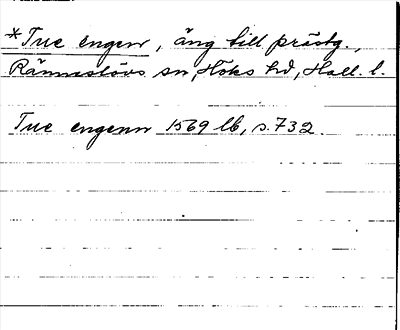 *Tue engenn, äng till prästg.,
Ränneslövs sn, Höks hd, Hall. l.
Tue engenn 1569 lb, s. 732.